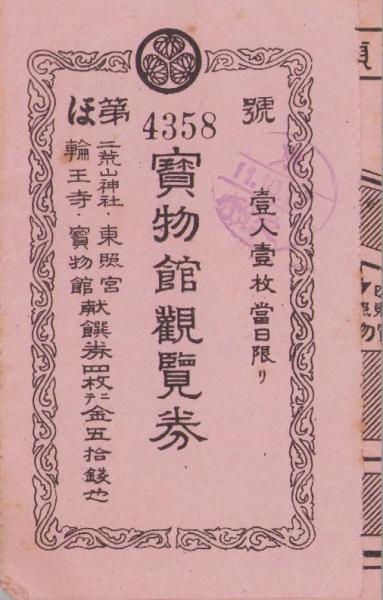 ほ第4358號
寶物館觀覽券
壹人壹枚當日限リ
二荒山神社・東照宮
輪王寺・寳物館
献饌券四枚ニテ金五拾錢也